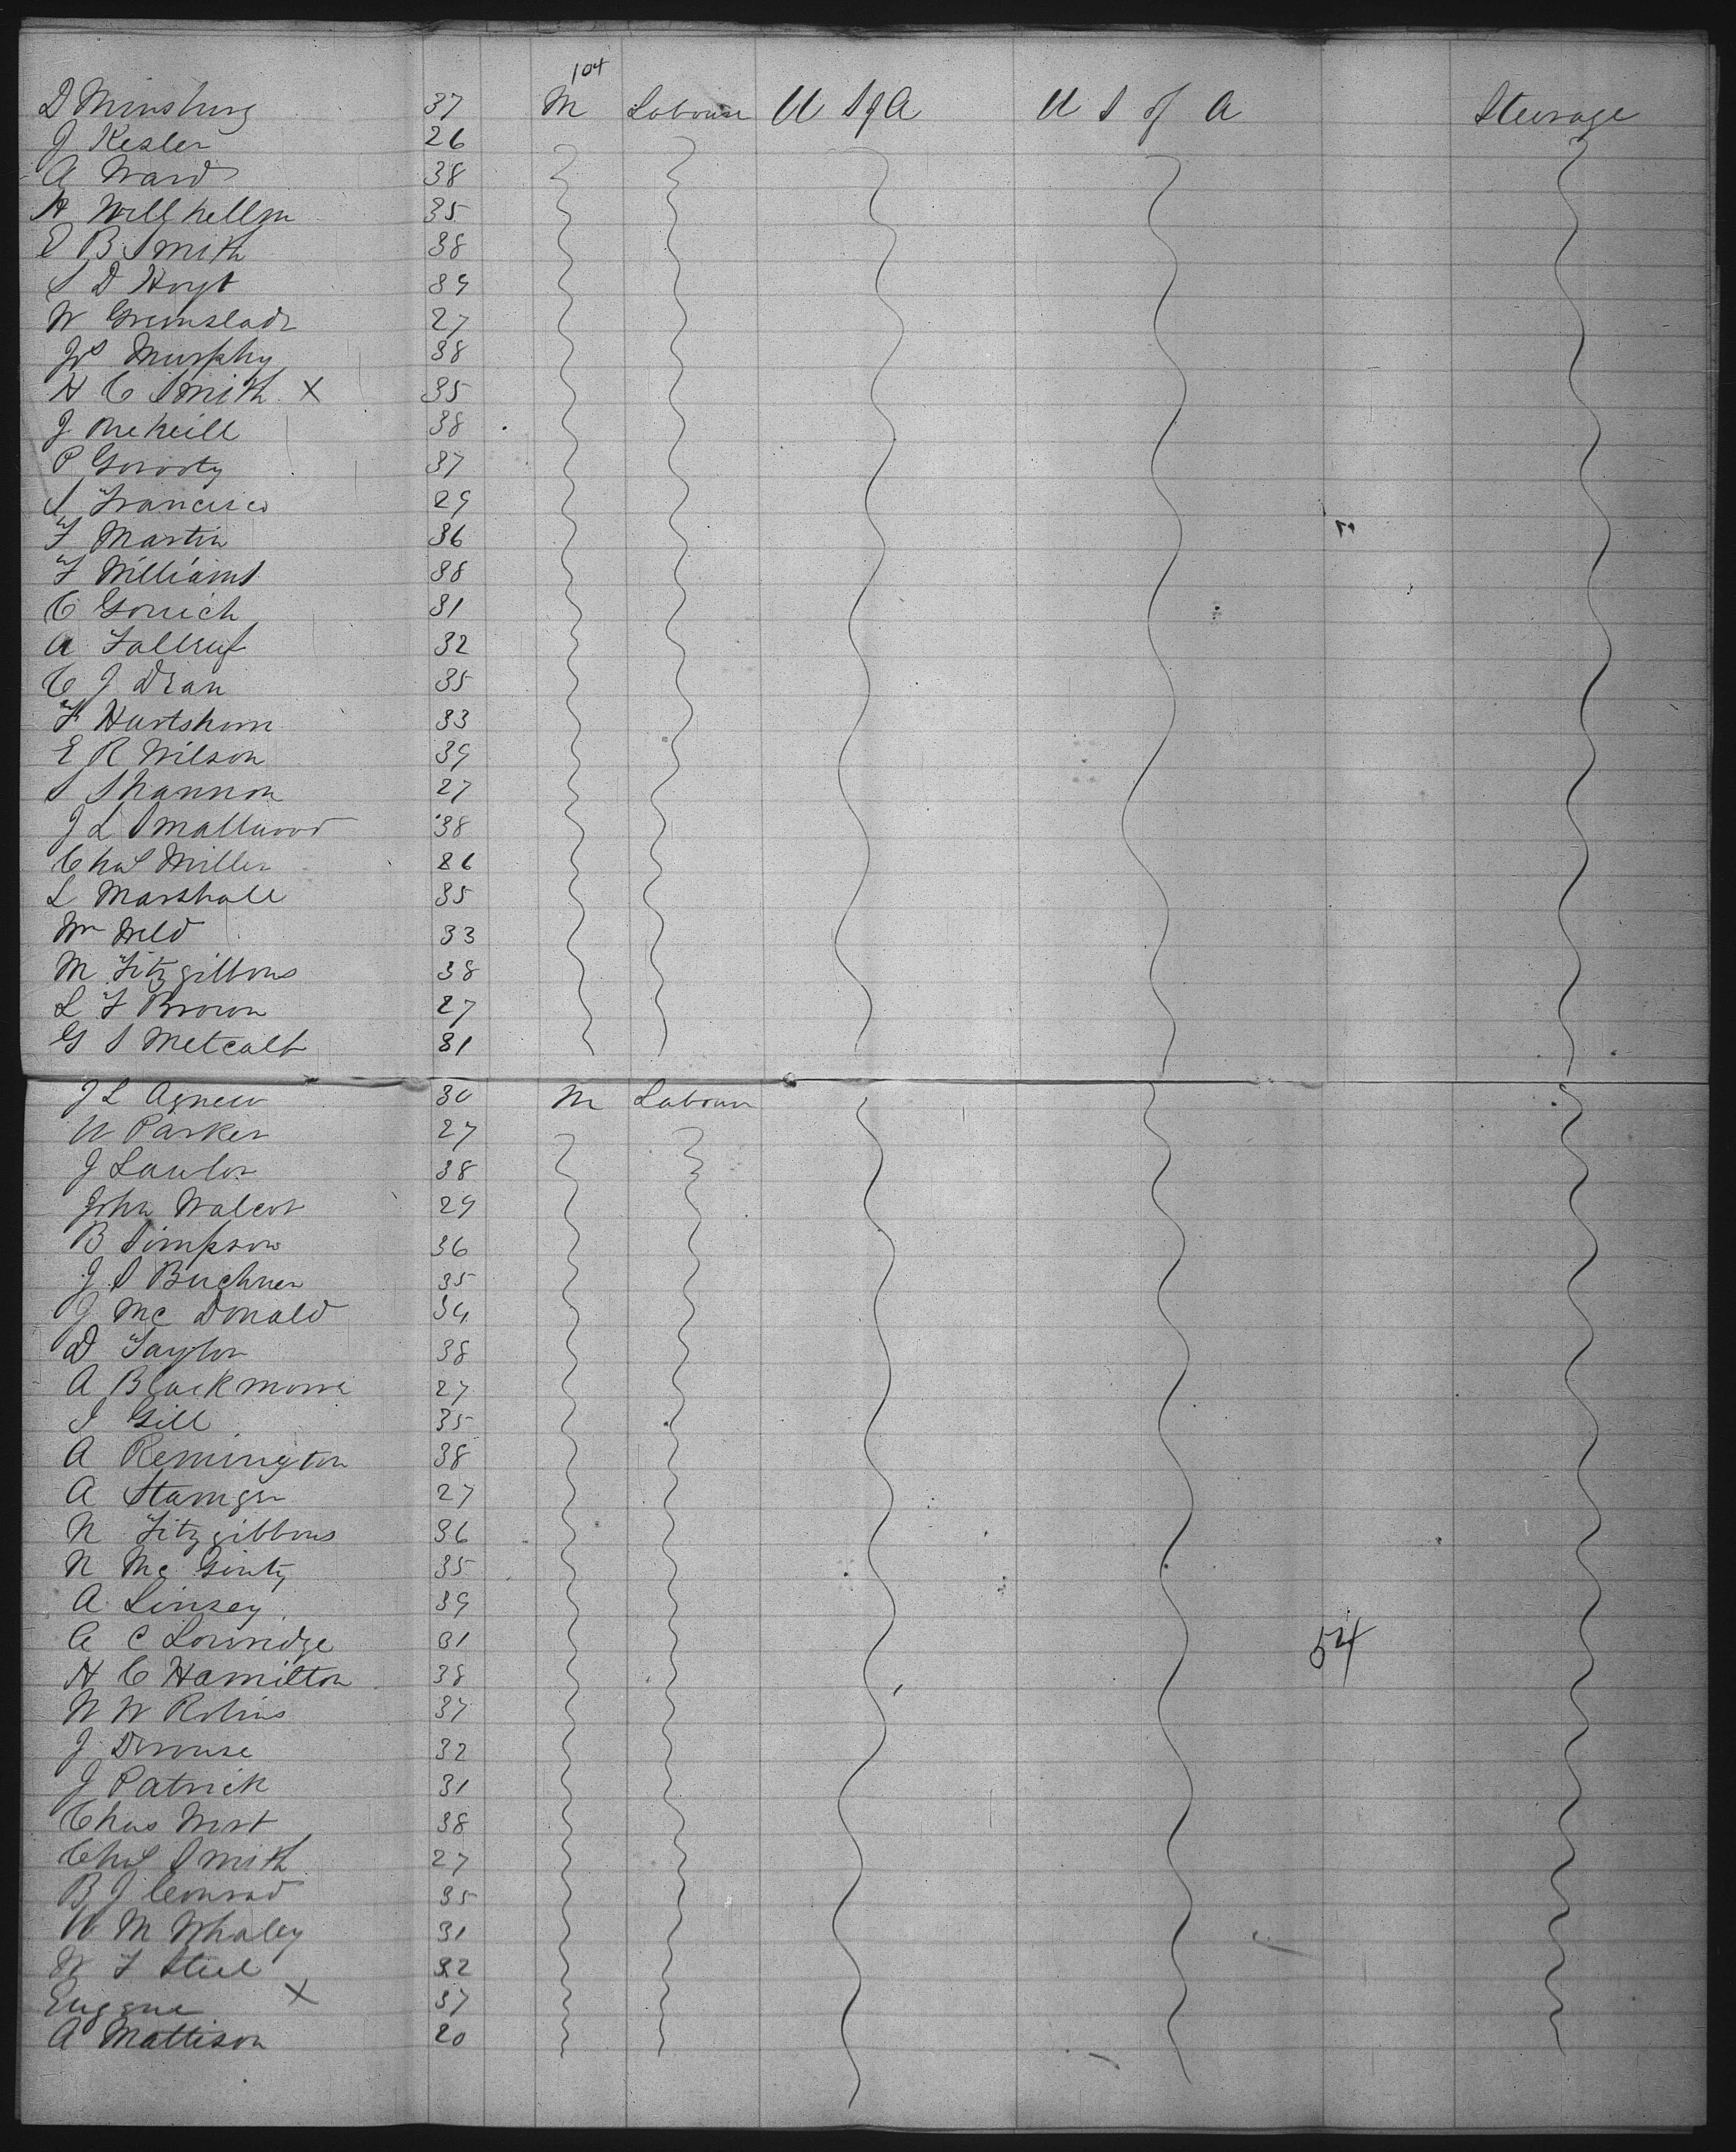 104
D Minsburg 37 M Labourer U S of A U S of A Steerage
J Kesler 26
A Ward 38
H Willhellm 35
E B Smith 38
S D Hoyt 39
W Grimslade 27
Js Murphy 38
H C Smith X 35
J McNeill 38
P Goroty 37
S Francisco 29
F Martin 36
F Williams 38
C Gouich 31
A Fallruf 32
C J Dean 35
F Hartshorn 33
E R Wilson 39
S Shannon 27
J L Smallwood 38
Chas Miller 26
L Marshall 35
Wm Weld 33
M Fitzgibbons 38
L F Brown 27
G S Metcalf 31
J L Agnew 30 M Labourer
W Parker 27
J Lawlor 38
John Walcot 29
B Simpson 36
J S Buchner 35
J Mc Donald 34
D Taylor 38
A Blackmore 27
J Gill 35
A Remington 38
A Stamger 27
N Fitzgibbons 36
N Mc Ginty 35
A Linsey 39
A C Lowridge 31 54
H C Hamilton 38
W W Robins 37
J Derouse 32
J Patrick 31
Chas West 38
Chas Smith 27
B J Conrad 35
W M Whaley 31
W F Steel 32
Eugene X 37
A Mattison 20